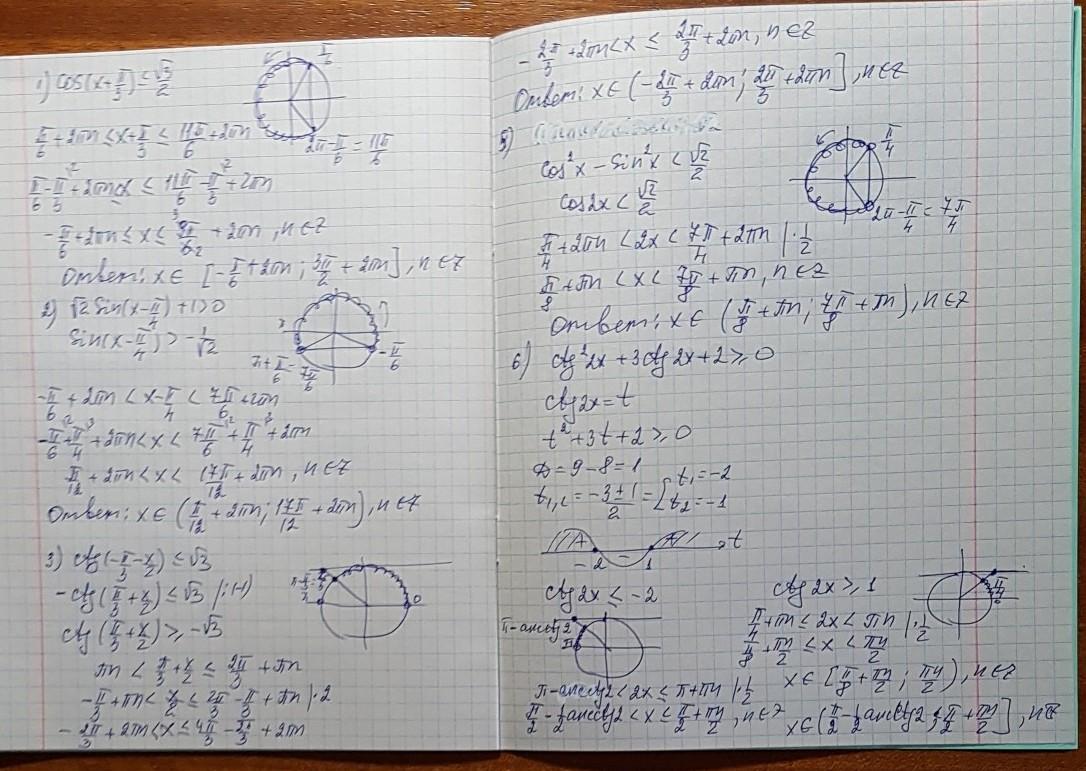 1) cos(x+π/3) ≤ √3/2
π/6
2π-π/6 = 11π/6
π/6 + 2πn ≤ x+π/3 ≤ 11π/6 + 2πn
π/6 - π/3 + 2πn ≤ x ≤ 11π/6 - π/3 + 2πn
-π/6 + 2πn ≤ x ≤ 3π/2 + 2πn, n∈Z
Ответ: x∈ [-π/6 + 2πn; 3π/2 + 2πn], n∈Z
2) √2 sin(x-π/4)+1>0
sin(x-π/4) > -1/√2
π+π/6 = 7π/6
-π/6
-π/6 + 2πn < x-π/4 < 7π/6 + 2πn
-π/6 + π/4 + 2πn < x < 7π/6 + π/4 + 2πn
π/12 + 2πn < x < 17π/12 + 2πn, n∈Z
Ответ: x∈ (π/12 + 2πn; 17π/12 + 2πn), n∈Z
3) ctg(-π/3 - x/2) ≤ √3
-ctg(π/3 + x/2) ≤ √3 |:(-1)
0
ctg(π/3 + x/2) ≥ -√3
πn < π/3 + x/2 ≤ 2π/3 + πn
-π/3 + πn < x/2 ≤ 2π/3 - π/3 + πn |·2
-2π/3 + 2πn < x ≤ 4π/3 - 2π/3 + 2πn
-2π/3 + 2πn < x ≤ 2π/3 + 2πn, n∈Z
Ответ: x∈ (-2π/3 + 2πn; 2π/3 + 2πn], n∈Z
5)
cos²x - sin²x < √2/2
cos2x < √2/2
π/4
2π-π/4 = 7π/4
π/4 + 2πn < 2x < 7π/4 + 2πn |·1/2
π/8 + πn < x < 7π/8 + πn, n∈Z
Ответ: x∈ (π/8 + πn; 7π/8 + πn), n∈Z
6) ctg²2x + 3ctg2x + 2 ≥ 0
ctg2x = t
t² + 3t + 2 ≥ 0
D = 9-8 = 1
t1,2 = (-3±1)/2 = [t1 = -2
t2 = -1
-2 1 t
ctg2x ≤ -2
π-arcctg2
π
π-arcctg2 < 2x ≤ π + πn |·1/2
π/2 - 1/2 arcctg2 < x ≤ π/2 + πn/2, n∈Z
x∈(π/2 - 1/2 arcctg2; π/2 + πn/2], n∈Z
ctg2x ≥ 1
π/4
π/4 + πn ≤ 2x < πn |·1/2
π/8 + πn/2 ≤ x < πn/2
x∈ [π/8 + πn/2; πn/2), n∈Z